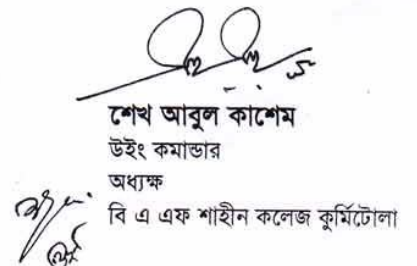 শেখ আবুল কাশেম
উইং কমান্ডার
অধ্যক্ষ
বি এ এফ শাহীন কলেজ কুর্মিটোলা